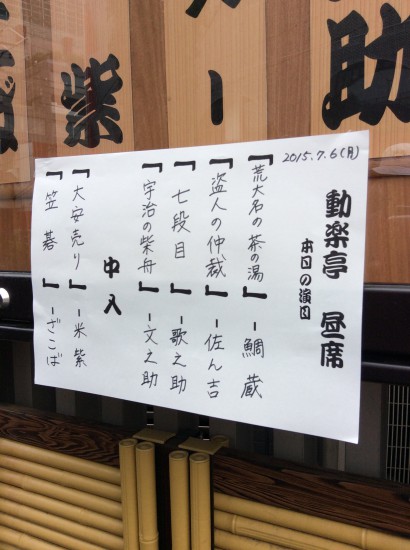 助
ー
紫
2015.7.6(月)
動楽亭 昼席
本日の演目
『荒大名の茶の湯』-鯛蔵
『盗人の仲裁』-佐ん吉
『七段目』-歌之助
『宇治の柴舟』-文之助
中入
『大安売り』-米紫
『笠碁』-ざこば